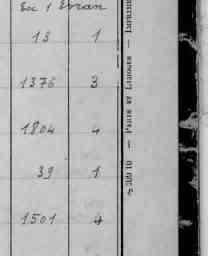 Ex 1 Ecran
13 1
1376 3
1804 4
39 1
1501 4
PARIS ET LIMOGES — IMPRIM